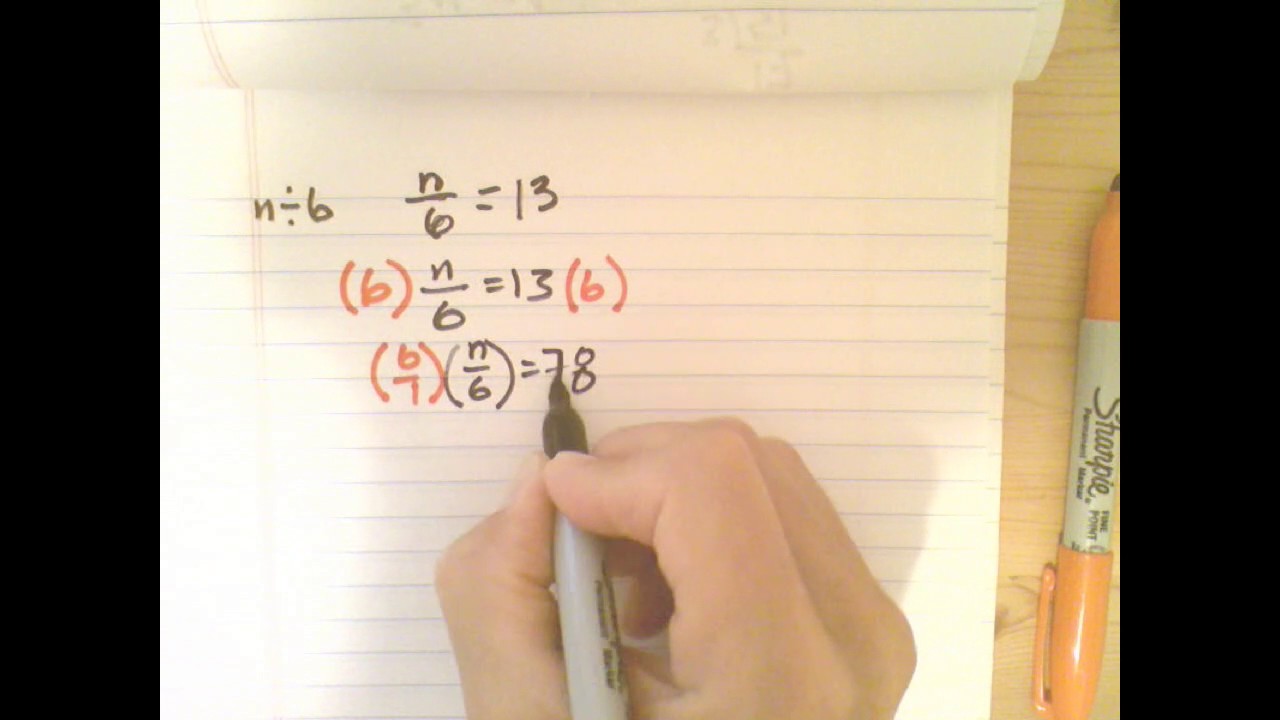 n÷6 n/6 = 13
(6) n/6 = 13 (6)
(6/1)(n/6) = 78
Sharpie.
Permanent Marker
FINE POINT